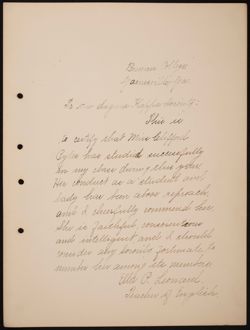 Brenau College
Gainesville, Ga.
To
Kappa Sorority:
This is
to certify that Miss Clifford
has studied successfully
in my class during this year.
Her conduct as a student and
lady has been above reproach,
and I cheerfully commend her.
She is faithful, conscientious
and intelligent and I should
consider any sorority fortunate to
number her among its members.
P. Leonard,
Teacher of English.